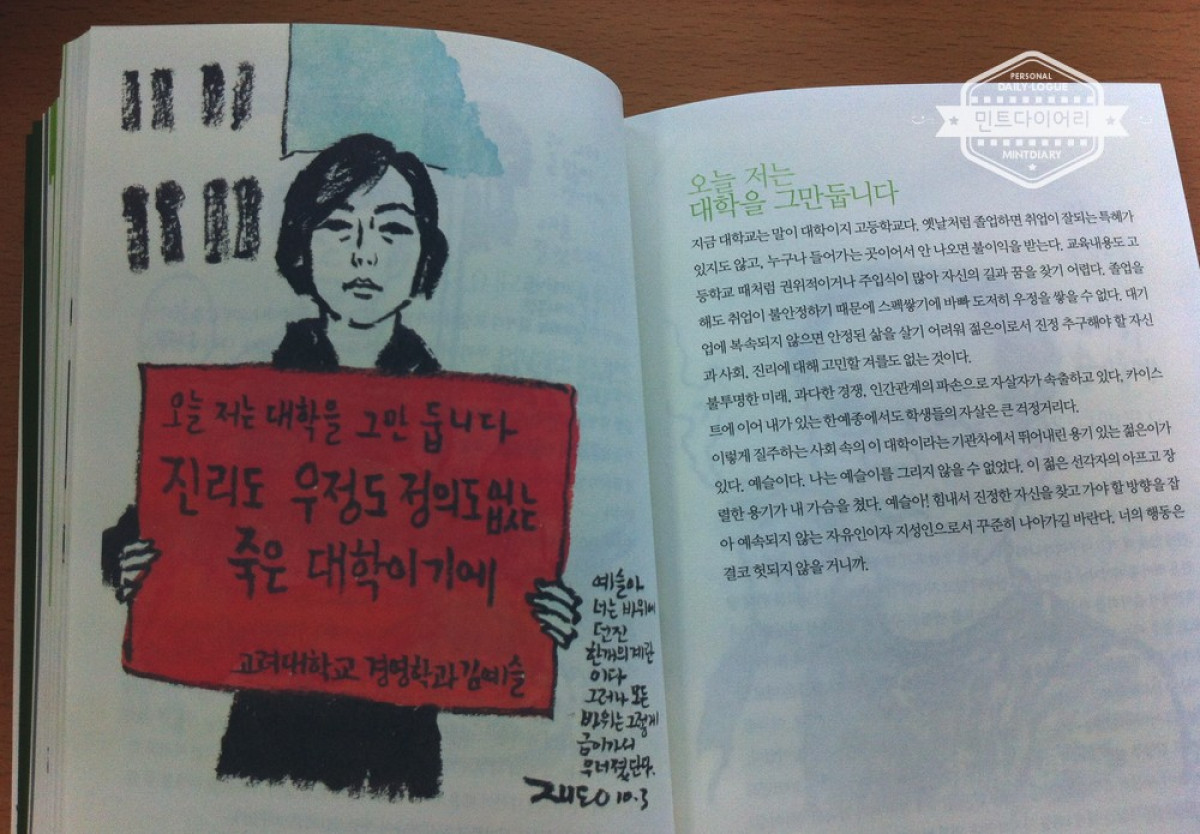 오늘 저는 대학을 그만 둡니다
진리도 우정도 정의도 없는
죽은 대학이기에
고려대학교 경영학과 김예슬
예슬아
너는 바위에
던진
한개의 계란
이다
그러나 모든
바위는 그렇게
금이가서
무너졌단다.
재동 10.3
PERSONAL
DAILY·LOGUE
민트다이어리
MINTDIARY
오늘 저는
대학을 그만둡니다
지금 대학교는 말이 대학이지 고등학교다. 옛날처럼 졸업하면 취업이 잘되는 특혜가
있지도 않고, 누구나 들어가는 곳이어서 안 나오면 불이익을 받는다. 교육내용도 고
등학교 때처럼 권위적이거나 주입식이 많아 자신의 길과 꿈을 찾기 어렵다. 졸업을
해도 취업이 불안정하기 때문에 스펙쌓기에 바빠 도저히 우정을 쌓을 수 없다. 대기
업에 복속되지 않으면 안정된 삶을 살기 어려워 젊은이로서 진정 추구해야 할 자신
과 사회, 진리에 대해 고민할 겨를도 없는 것이다.
불투명한 미래, 과다한 경쟁, 인간관계의 파손으로 자살자가 속출하고 있다. 카이스
트에 이어 내가 있는 한예종에서도 학생들의 자살은 큰 걱정거리다.
이렇게 질주하는 사회 속의 이 대학이라는 기관차에서 뛰어내린 용기 있는 젊은이가
있다. 예슬이다. 나는 예슬이를 그리지 않을 수 없었다. 이 젊은 선각자의 아프고 장
렬한 용기가 내 가슴을 쳤다. 예슬아! 힘내서 진정한 자신을 찾고 가야 할 방향을 잡
아 예속되지 않는 자유인이자 지성인으로서 꾸준히 나아가길 바란다. 너의 행동은
결코 헛되지 않을 거니까.